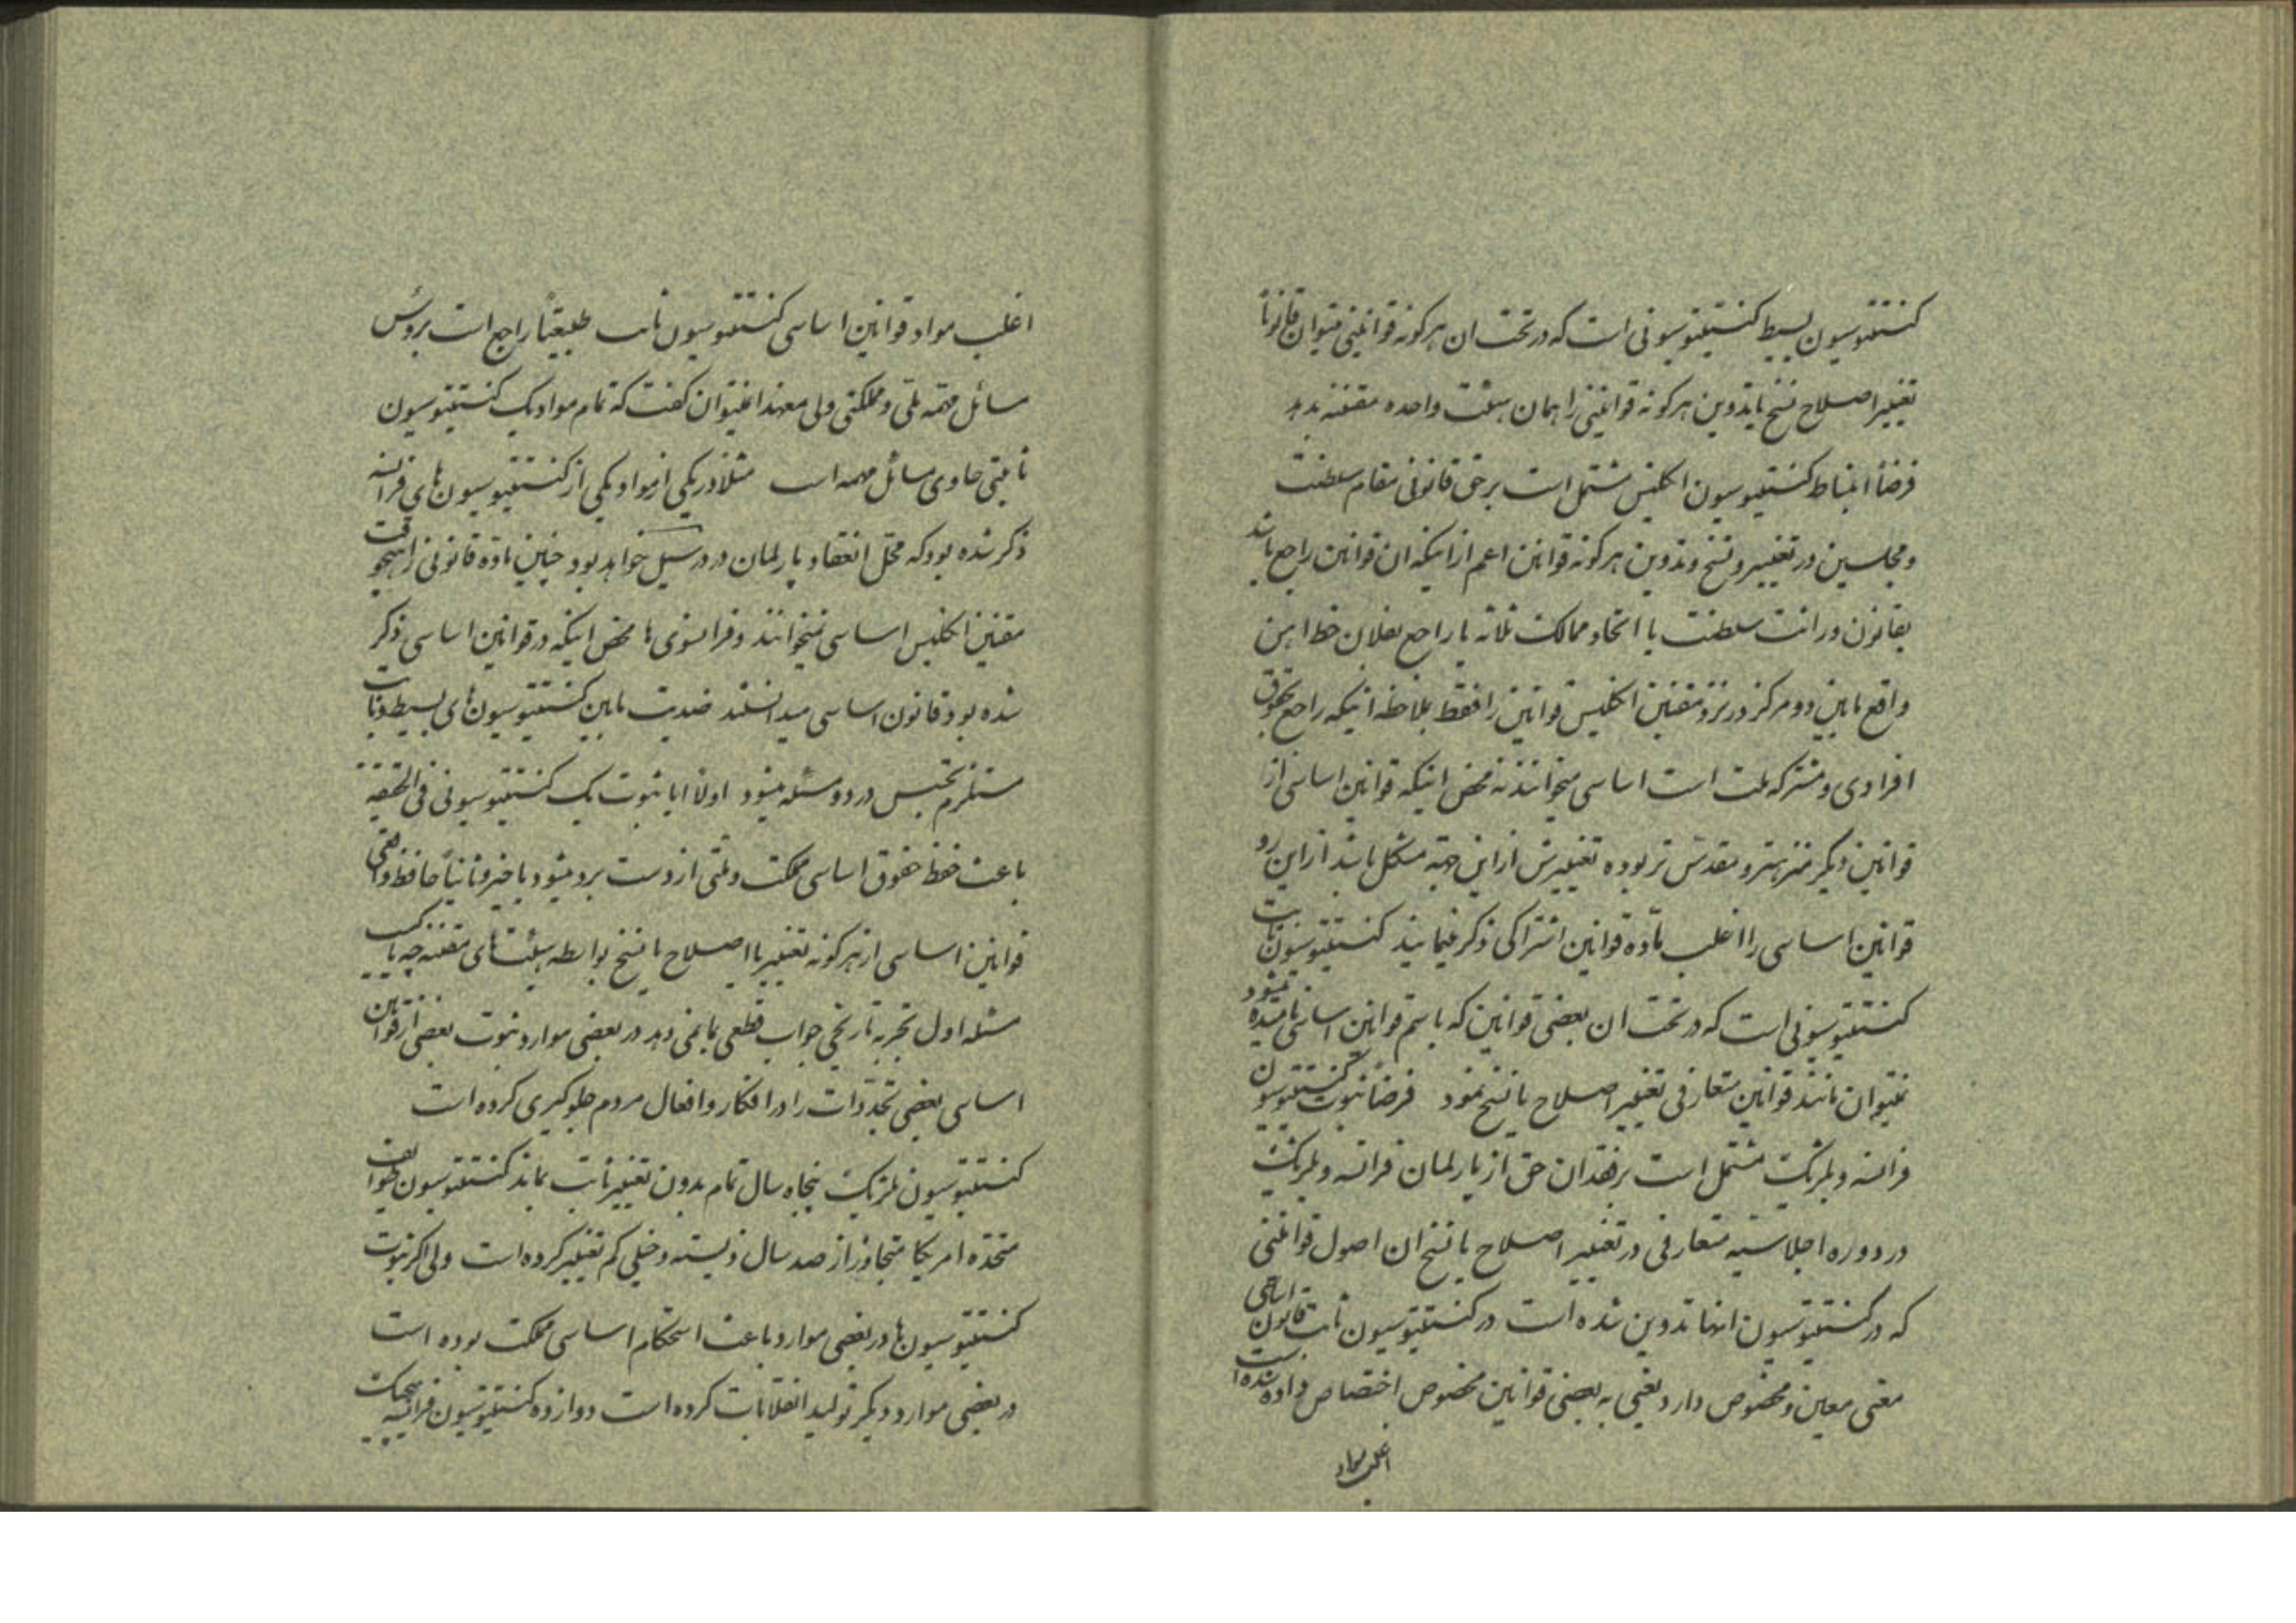 کنستیتوسیون بسیط کنستیتوسیونی است که در تحت ان هرگونه قوانینی میتوان قانوناً
تغییر اصلاح نسخ یا تدوین هرگونه قوانینی را همان هیئت واحده مقننه بدهد
فرضاً انبساط کنستیتوسیون انگلیس مشتمل است بر حق قانونی مقام سلطنت
و مجلسین در تغییر و نسخ و تدوین هرگونه قوانین اعم از اینکه ان قوانین راجع باشد
بقانون وراثت سلطنت یا اتحاد ممالک ثلاثه یا راجع بفلان خط اهن
واقع مابین دو مرکز در نزد مقننین انگلیس قوانین را فقط بملاحظه اینکه راجع بحقوق
افرادی و مشترکه ملت است اساسی میخوانند نه محض اینکه قوانین اساسی از
قوانین دیگر منزه‌تر و مقدس تر بوده تغییرش از این جهته مشکل باشد از این رو
قوانین اساسی را اغلب ماده قوانین اشتراکی ذکر مینمایند کنستیتوسیون ثابت
کنستیتوسیونی است که در تحت ان بعضی قوانین که باسم قوانین اساسی نامیده میشود
نمیتوان مانند قوانین متعارفی تغییر اصلاح یا نسخ نمود فرضاً ثبوت کنستیتوسیون
فرانسه و بلژیک مشتمل است بر فقدان حق از پارلمان فرانسه و بلژیک
در دوره اجلاسیه متعارفی در تغییر اصلاح یا نسخ ان اصول قوانینی
که در کنستیتوسیون انها تدوین شده است در کنستیتوسیون ثابت قانون اساسی
معنی معین و مخصوص دارد یعنی به بعضی قوانین مخصوص اختصاص داده شده است
اغلب مواد
اغلب مواد قوانین اساسی کنستیتوسیون ثابت طبیعتاً راجع است بروس
مسائل مهمه ملتی و مملکتی ولی معهذا نمیتوان گفت که تمام مواد یک کنستیتوسیون
ثابتی حاوی مسائل مهمه است مثلاً در یکی از مواد یکی از کنستیتوسیون های فرانسه
ذکر شده بود که محل انعقاد پارلمان در ورسیل خواهد بود چنین ماده قانونی را هیچوقت
مقننین انگلیس اساسی نمیخوانند و فرانسوی ها محض اینکه در قوانین اساسی ذکر
شده بود قانون اساسی میدانستند ضدیت مابین کنستیتوسیون های بسیط و ثابت
مستلزم تجسس در دو مسئله میشود اولاً ایا ثبوت یک کنستیتوسیونی فی الحقیقه
باعث حفظ حقوق اساسی مملکت و ملتی از دست برد میشود یا خیر و ثانیاً حافظ واقعی
قوانین اساسی از هرگونه تغییر یا اصلاح یا نسخ بواسطه هیئت های مقننه چه باید کرد
مسئله اول تجربه تاریخی جواب قطعی بما نمی دهد در بعضی موارد ثبوت بعضی از قوانین
اساسی بعضی تجددات را در افکار و افعال مردم جلوگیری کرده است
کنستیتوسیون بلژیک پنجاه سال تمام بدون تغییر ثابت بماند کنستیتوسیون طوایف
متحده امریکا متجاوز از صد سال زیسته و خیلی کم تغییر کرده است ولی اگر ثبوت
کنستیتوسیون ها در بعضی موارد باعث استحکام اساسی مملکت بوده است
در بعضی موارد دیگر تولید انقلابات کرده است دوازده کنستیتوسیون فرانسه هیچیک